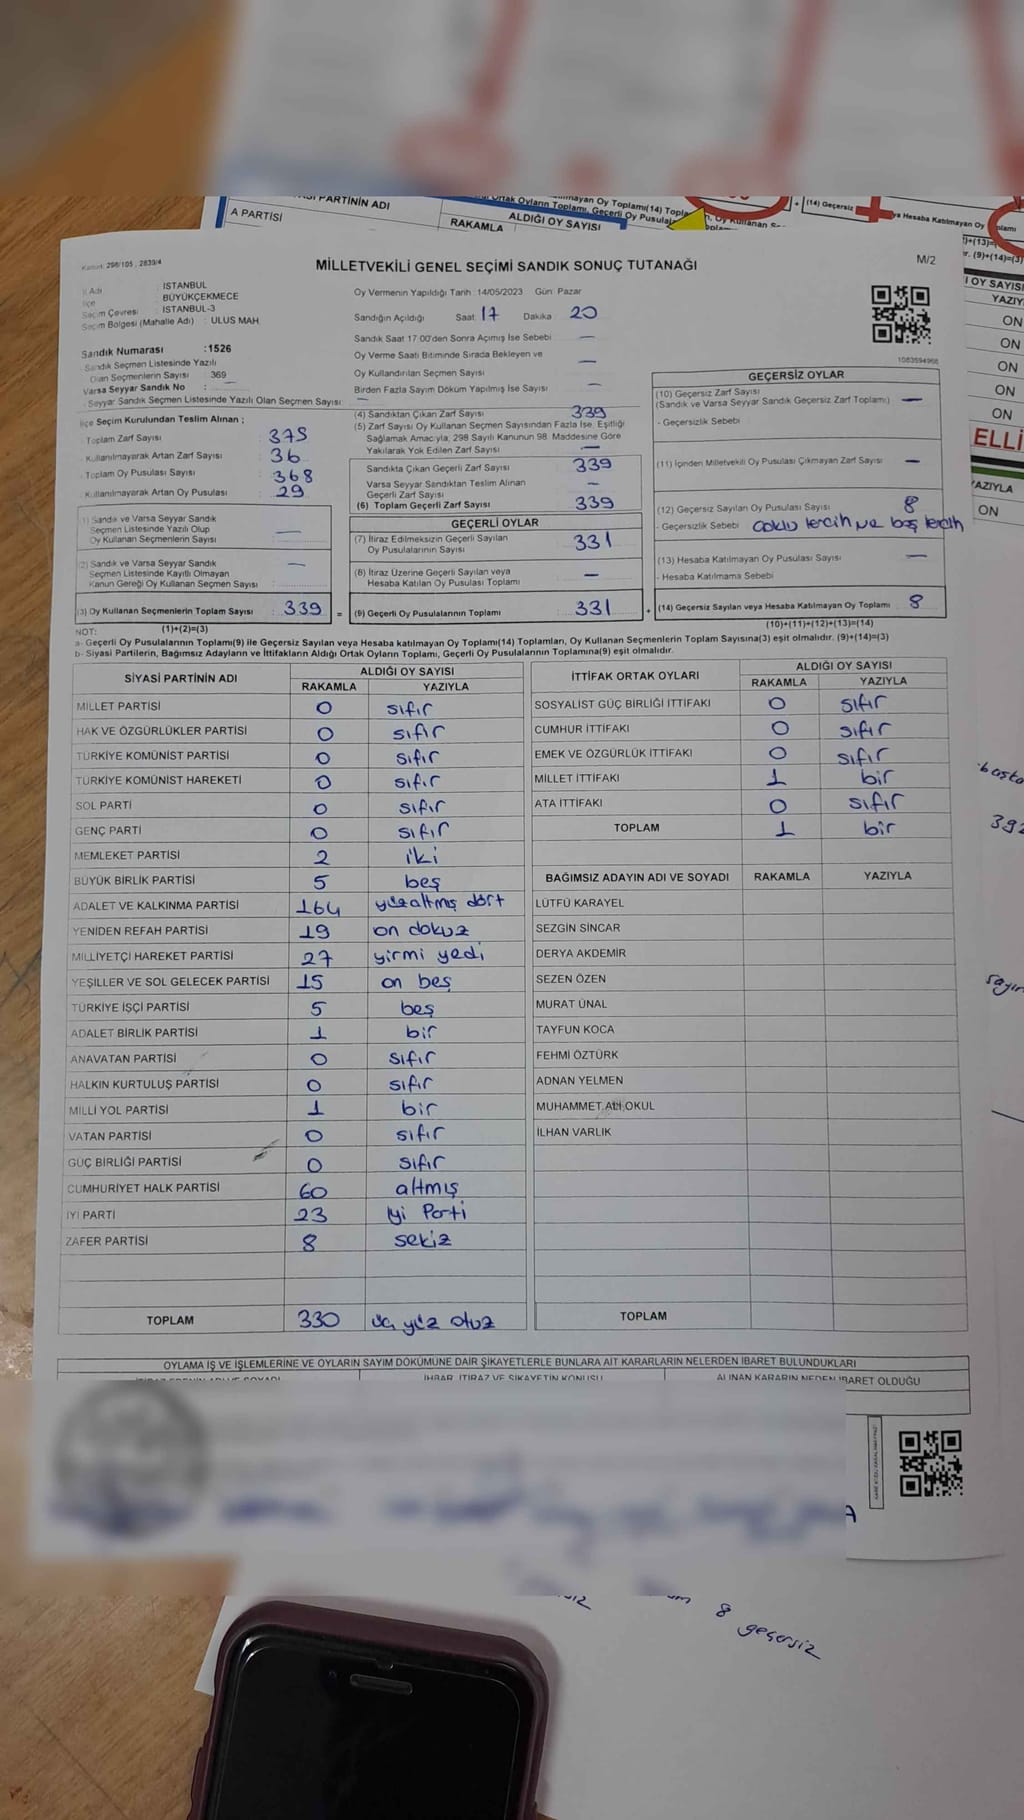 A PARTİSİ
RAKAMLA
ALDIĞI OY SAYISI
Kanun: 298/105, 2839/4
MİLLETVEKİLİ GENEL SEÇİMİ SANDIK SONUÇ TUTANAĞI
M/2
İl Adı : İSTANBUL
İlçe : BÜYÜKÇEKMECE
Seçim Çevresi : İSTANBUL-3
Seçim Bölgesi (Mahalle Adı) : ULUS MAH.
Oy Vermenin Yapıldığı Tarih :14/05/2023 Gün: Pazar
Sandığın Açıldığı Saat: 17 Dakika: 20
Sandık Saat 17:00'den Sonra Açımış İse Sebebi —
Oy Verme Saati Bitiminde Sırada Bekleyen ve
Oy Kullandırılan Seçmen Sayısı —
Birden Fazla Sayım Döküm Yapılmış İse Sayısı —
1083594966
Sandık Numarası :1526
Sandık Seçmen Listesinde Yazılı
Olan Seçmenlerin Sayısı : 369
Varsa Seyyar Sandık No : —
Seyyar Sandık Seçmen Listesinde Yazılı Olan Seçmen Sayısı : —
İlçe Seçim Kurulundan Teslim Alınan ;
Toplam Zarf Sayısı : 375
Kullanılmayarak Artan Zarf Sayısı : 36
Toplam Oy Pusulası Sayısı : 368
Kullanılmayarak Artan Oy Pusulası : 29
(1) Sandık ve Varsa Seyyar Sandık
Seçmen Listesinde Yazılı Olup
Oy Kullanan Seçmenlerin Sayısı —
(2) Sandık ve Varsa Seyyar Sandık
Seçmen Listesinde Kayıtlı Olmayan
Kanun Gereği Oy Kullanan Seçmen Sayısı —
(3) Oy Kullanan Seçmenlerin Toplam Sayısı 339 =
(1)+(2)=(3)
(4) Sandıktan Çıkan Zarf Sayısı 339
(5) Zarf Sayısı Oy Kullanan Seçmen Sayısından Fazla İse, Eşitliği
Sağlamak Amacıyla, 298 Sayılı Kanunun 98. Maddesine Göre
Yakılarak Yok Edilen Zarf Sayısı —
Sandıkta Çıkan Geçerli Zarf Sayısı 339
Varsa Seyyar Sandıktan Teslim Alınan
Geçerli Zarf Sayısı —
(6) Toplam Geçerli Zarf Sayısı 339
GEÇERLİ OYLAR
(7) İtiraz Edilmeksizin Geçerli Sayılan
Oy Pusulalarının Sayısı 331
(8) İtiraz Üzerine Geçerli Sayılan veya
Hesaba Katılan Oy Pusulası Toplamı —
(9) Geçerli Oy Pusulalarının Toplamı 331 +
GEÇERSİZ OYLAR
(10) Geçersiz Zarf Sayısı
(Sandık ve Varsa Seyyar Sandık Geçersiz Zarf Toplamı) —
- Geçersizlik Sebebi
(11) İçinden Milletvekili Oy Pusulası Çıkmayan Zarf Sayısı —
(12) Geçersiz Sayılan Oy Pusulası Sayısı 8
- Geçersizlik Sebebi çoklu tercih ve boş tercih
(13) Hesaba Katılmayan Oy Pusulası Sayısı —
- Hesaba Katılmama Sebebi
(14) Geçersiz Sayılan veya Hesaba Katılmayan Oy Toplamı 8
(10)+(11)+(12)+(13)=(14)
NOT:
a- Geçerli Oy Pusulalarının Toplamı(9) ile Geçersiz Sayılan veya Hesaba katılmayan Oy Toplamı(14) Toplamları, Oy Kullanan Seçmenlerin Toplam Sayısına(3) eşit olmalıdır. (9)+(14)=(3)
b- Siyasi Partilerin, Bağımsız Adayların ve İttifakların Aldığı Ortak Oyların Toplamı, Geçerli Oy Pusulalarının Toplamına(9) eşit olmalıdır.
SİYASİ PARTİNİN ADI ALDIĞI OY SAYISI
RAKAMLA YAZIYLA
MİLLET PARTİSİ 0 sıfır
HAK VE ÖZGÜRLÜKLER PARTİSİ 0 sıfır
TÜRKİYE KOMÜNİST PARTİSİ 0 sıfır
TÜRKİYE KOMÜNİST HAREKETİ 0 sıfır
SOL PARTİ 0 sıfır
GENÇ PARTİ 0 sıfır
MEMLEKET PARTİSİ 2 iki
BÜYÜK BİRLİK PARTİSİ 5 beş
ADALET VE KALKINMA PARTİSİ 164 yüzaltmış dört
YENİDEN REFAH PARTİSİ 19 on dokuz
MİLLİYETÇİ HAREKET PARTİSİ 27 yirmi yedi
YEŞİLLER VE SOL GELECEK PARTİSİ 15 on beş
TÜRKİYE İŞÇİ PARTİSİ 5 beş
ADALET BİRLİK PARTİSİ 1 bir
ANAVATAN PARTİSİ 0 sıfır
HALKIN KURTULUŞ PARTİSİ 0 sıfır
MİLLİ YOL PARTİSİ 1 bir
VATAN PARTİSİ 0 sıfır
GÜÇ BİRLİĞİ PARTİSİ 0 sıfır
CUMHURİYET HALK PARTİSİ 60 altmış
İYİ PARTİ 23 İyi Parti
ZAFER PARTİSİ 8 sekiz
TOPLAM 330 üç yüz otuz
İTTİFAK ORTAK OYLARI ALDIĞI OY SAYISI
RAKAMLA YAZIYLA
SOSYALİST GÜÇ BİRLİĞİ İTTİFAKI 0 sıfır
CUMHUR İTTİFAKI 0 sıfır
EMEK VE ÖZGÜRLÜK İTTİFAKI 0 sıfır
MİLLET İTTİFAKI 1 bir
ATA İTTİFAKI 0 sıfır
TOPLAM 1 bir
BAĞIMSIZ ADAYIN ADI VE SOYADI RAKAMLA YAZIYLA
LÜTFÜ KARAYEL
SEZGİN SİNCAR
DERYA AKDEMİR
SEZEN ÖZEN
MURAT ÜNAL
TAYFUN KOCA
FEHMİ ÖZTÜRK
ADNAN YELMEN
MUHAMMET ALİ OKUL
İLHAN VARLIK
TOPLAM
OYLAMA İŞ VE İŞLEMLERİNE VE OYLARIN SAYIM DÖKÜMÜNE DAİR ŞİKAYETLERLE BUNLARA AİT KARARLARIN NELERDEN İBARET BULUNDUKLARI
İHBAR, İTİRAZ VE ŞİKAYETİN KONUSU
ALINAN KARARIN NEDEN İBARET OLDUĞU
OY SAYISI
YAZIYLA
ON
ON
ON
ON
ON
ELLİ
YAZIYLA
ON
392
8 geçersiz